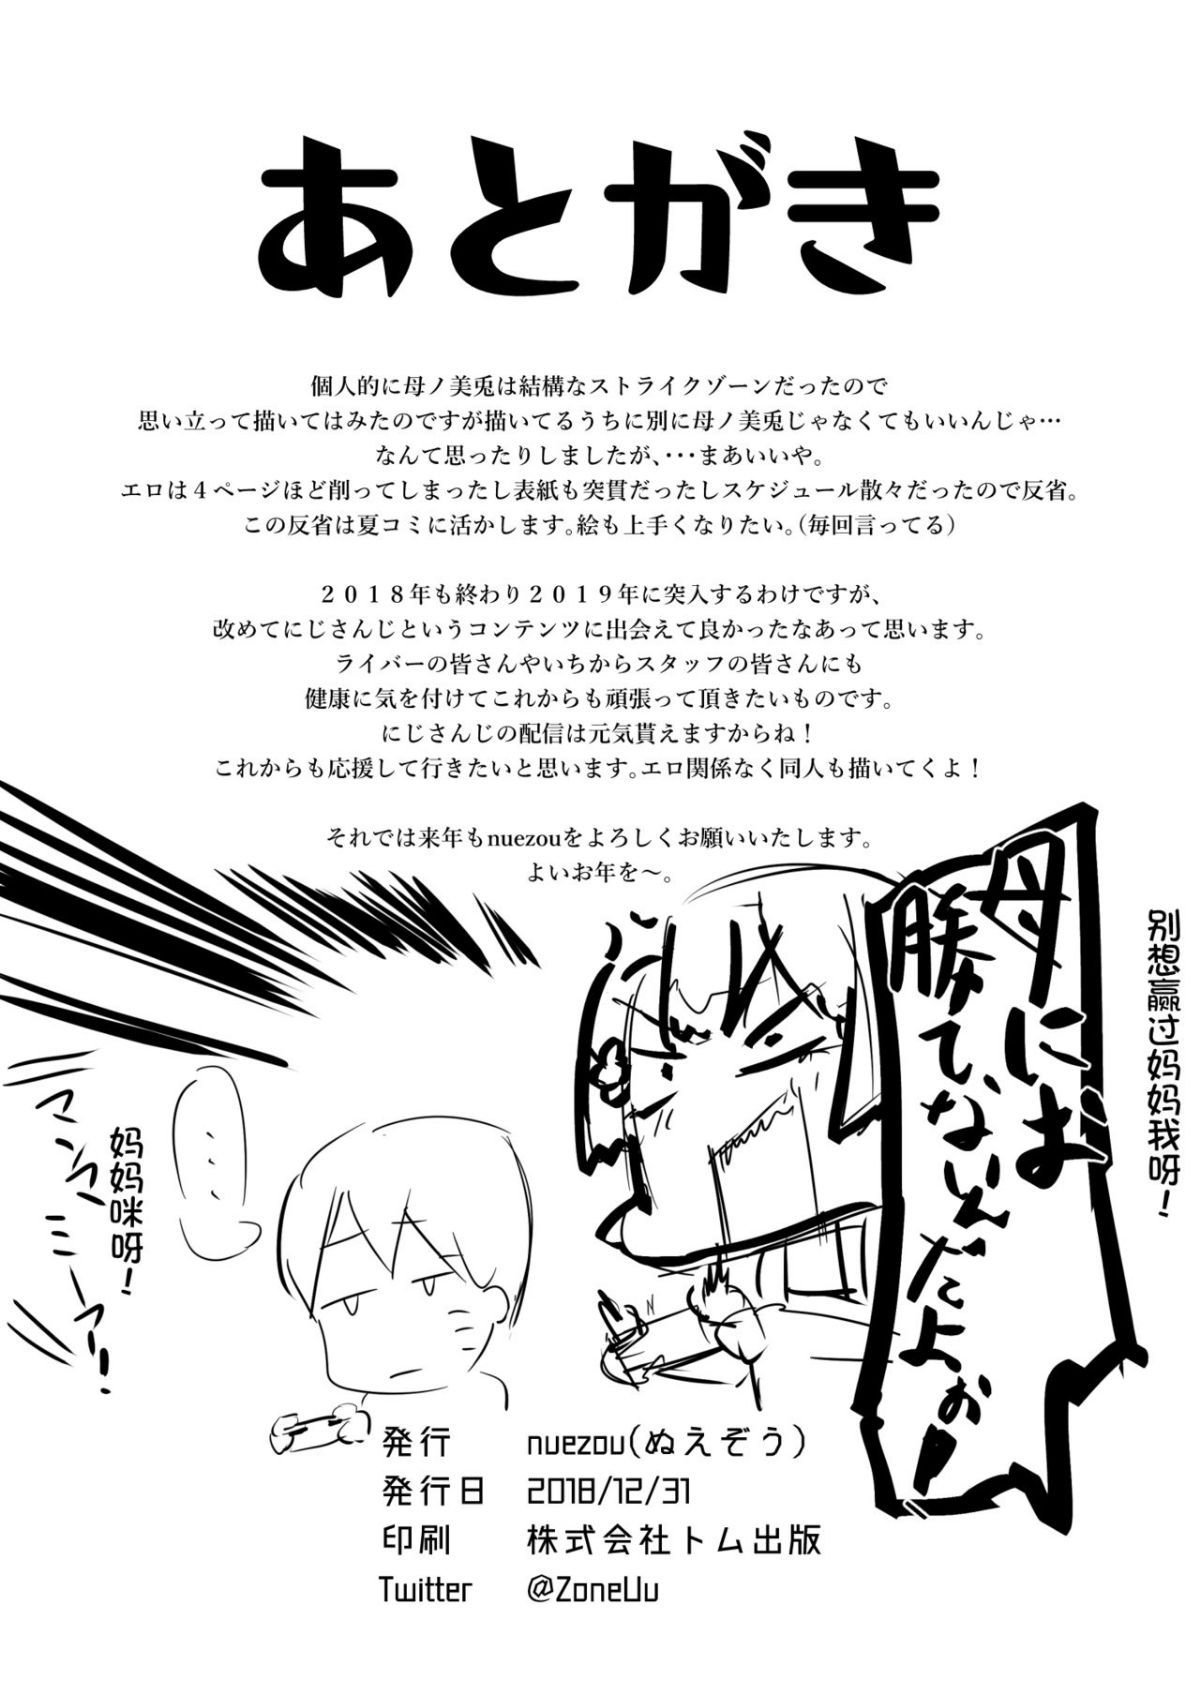 あとがき
個人的に母ノ美兎は結構なストライクゾーンだったので
思い立って描いてはみたのですが描いてるうちに別に母ノ美兎じゃなくてもいいんじゃ…
なんて思ったりしましたが、・・・まあいいや。
エロは４ページほど削ってしまったし表紙も突貫だったしスケジュール散々だったので反省。
この反省は夏コミに活かします。絵も上手くなりたい。（毎回言ってる）
２０１８年も終わり２０１９年に突入するわけですが、
改めてにじさんじというコンテンツに出会えて良かったなあって思います。
ライバーの皆さんやいちからスタッフの皆さんにも
健康に気を付けてこれからも頑張って頂きたいものです。
にじさんじの配信は元気貰えますからね！
これからも応援して行きたいと思います。エロ関係なく同人も描いてくよ！
それでは来年もnuezouをよろしくお願いいたします。
よいお年を～。
别想赢过妈妈我呀！
母にはぉ
勝てないんだよぉ!!
・・・
妈妈咪呀！
マンマミーアー!
発行 nuezou(ぬえぞう)
発行日 2018/12/31
印刷 株式会社トム出版
Twitter @ZoneUu